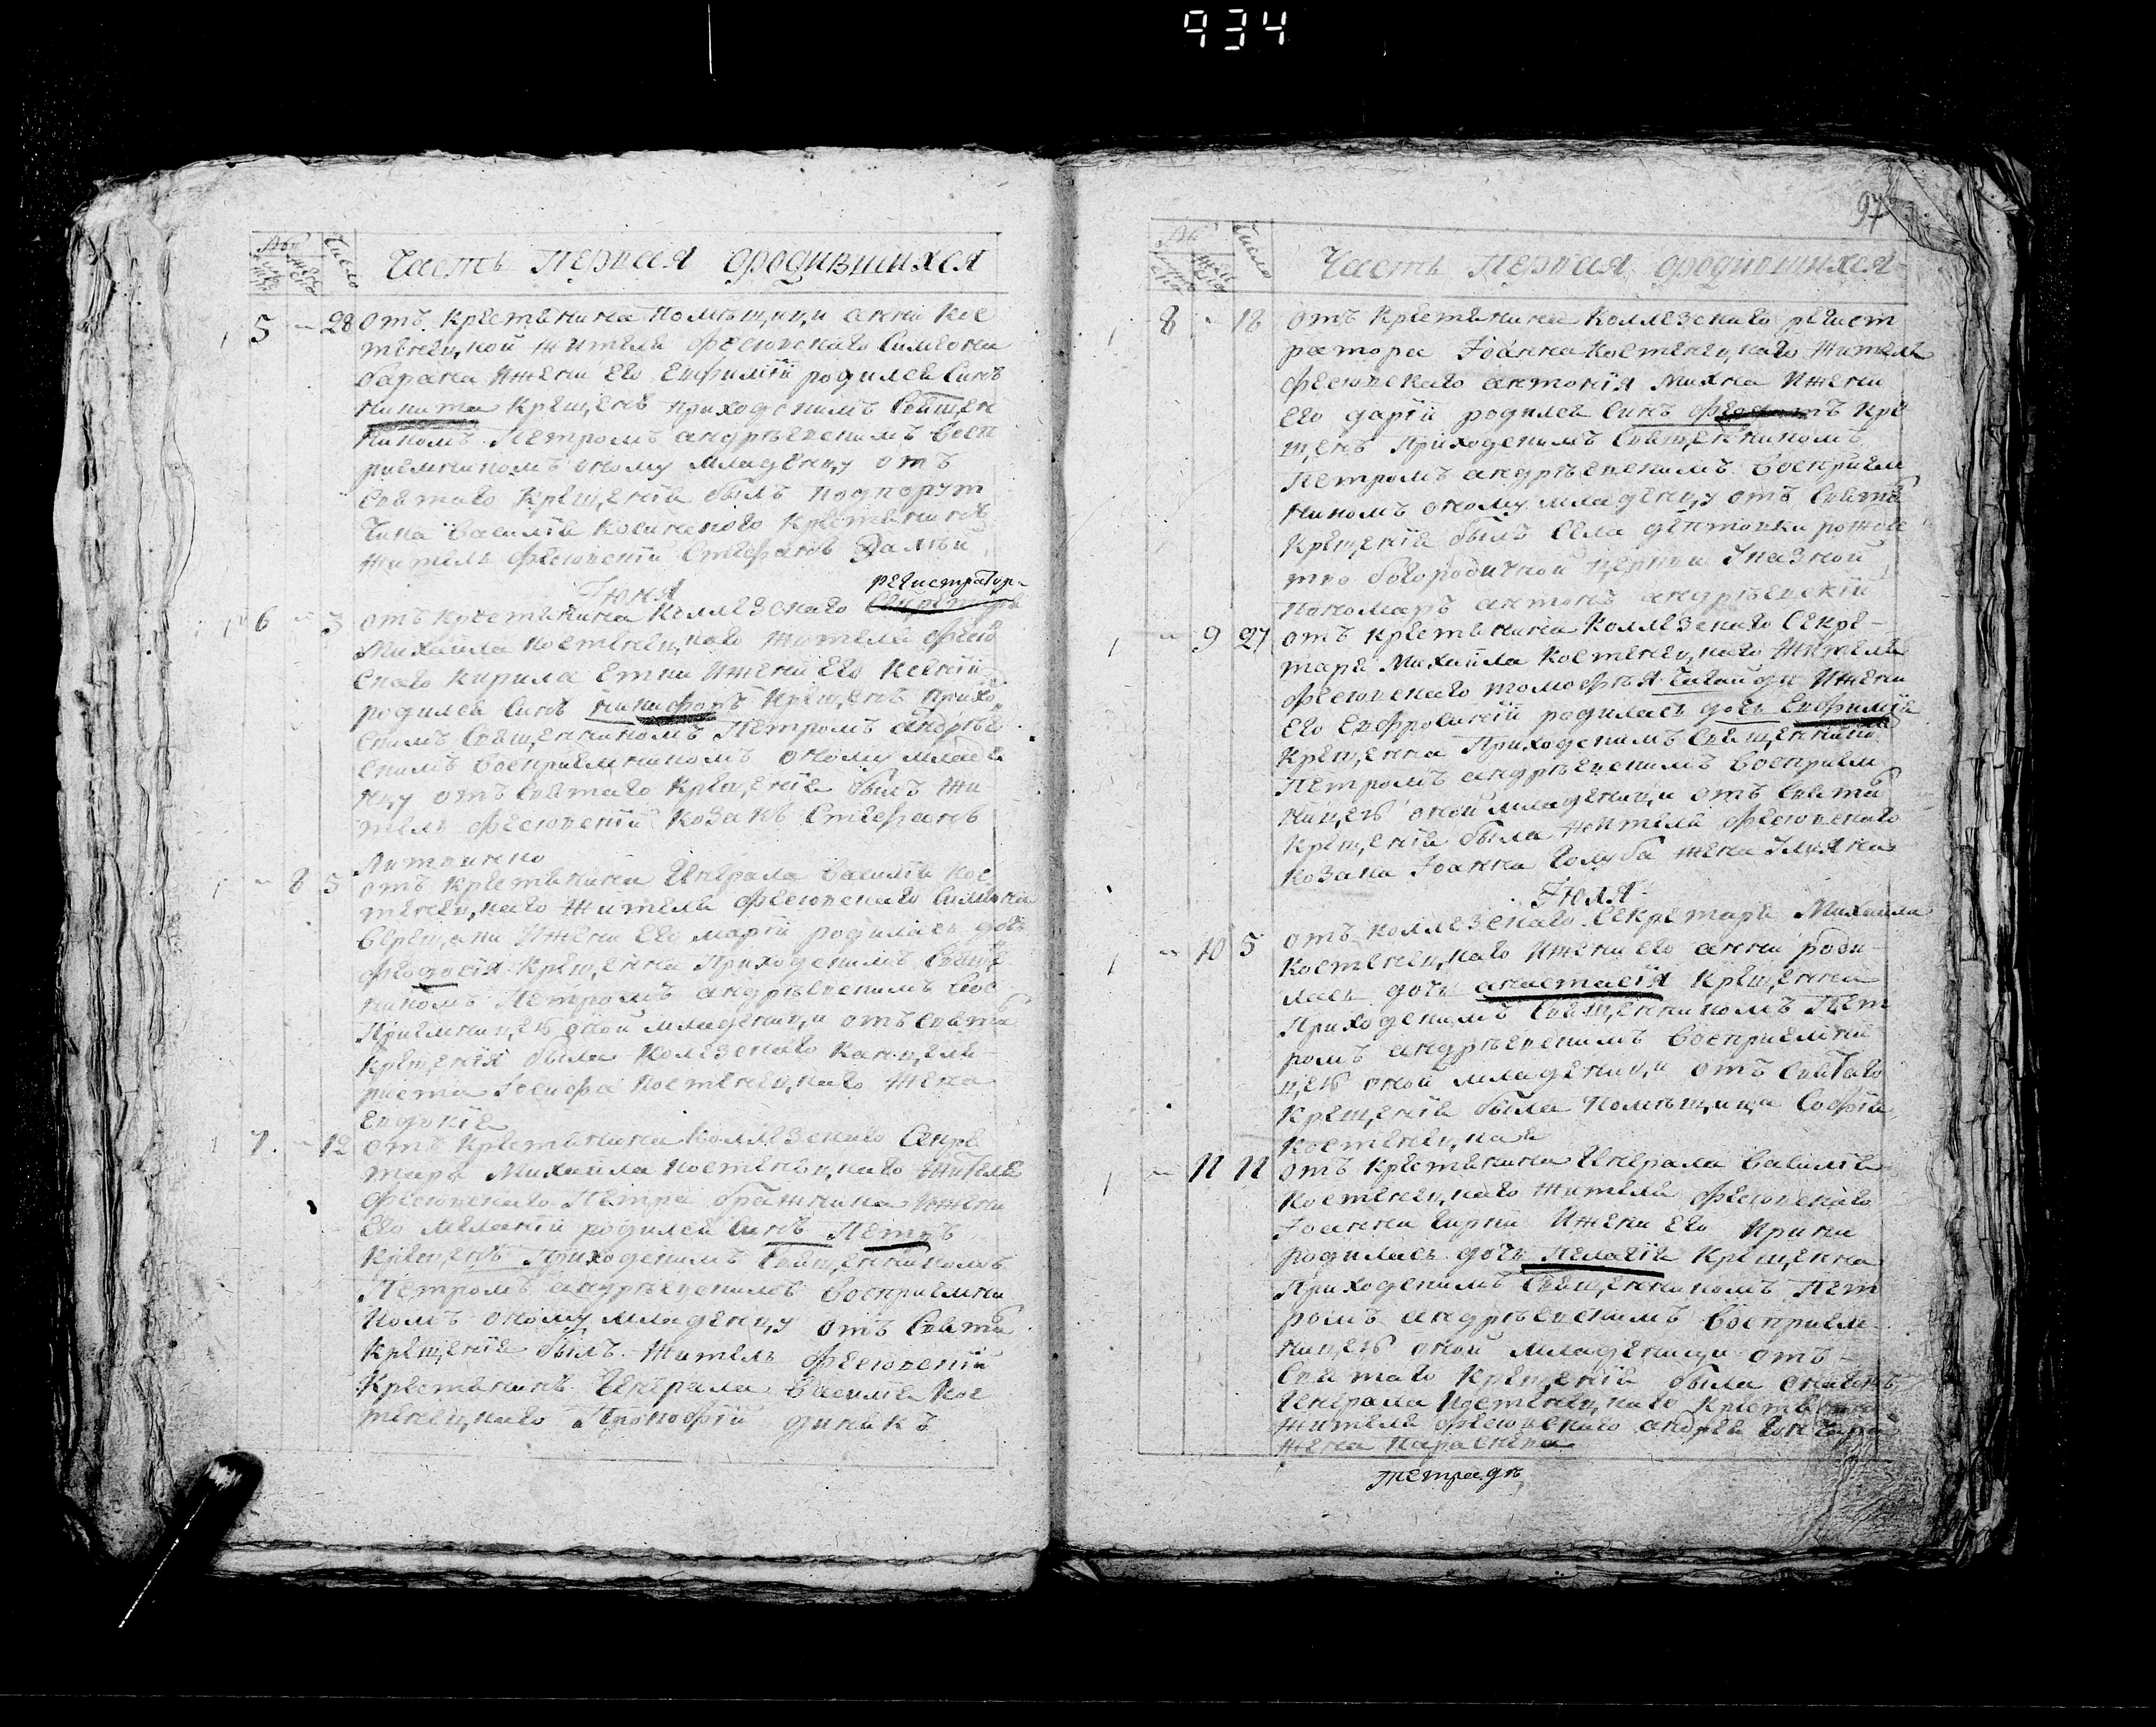 934
Часть Первая ородившихся
5 28 отъ крестянина Помѣщицы анни Кос
тенецкой жителя фесювского Симеона
барана ижени его Евфиміи родился синъ
никита крещенъ приходскимъ Священ
никомъ Петромъ андрѣевскимъ восп
риемникомъ оному младенцу отъ
Святаго крещенія былъ подпорут
чика Василія крестянинъ
житель фесювскій Стефанъ
Іюня
6 3 отъ крестянина Коллезского регистратор
Михаила Костенецкаго жителя фесюв
скаго кирила ижени его Ксеніи
родился синъ никифоръ крещенъ прихо
скимъ Священникомъ Петромъ андрѣев
скимъ восприемникомъ оному младе
нцу отъ Святаго крещенія былъ жи
тель фесювскій козакъ Стефанъ
Литвинко
8 5 отъ крестянина Генерала Василія Кос
тенецкаго жителя фесювскаго Симеона
верещаки ижени его маріи родилась дочь
феодосія крещенна приходскимъ Свяще
никомъ Петромъ андрѣевскимъ вос
приемницею оной младеници отъ Свята
крещенія была Колезскаго канцеля
риста Іосифа Костенецкаго жена
Евдокія
7 12 отъ крестянина Коллезскаго Секре
таря Михаила Костенецкаго жителя
фесювскаго Петра бражника ижени
его меланіи родился синъ Петръ
крещенъ приходскимъ Священникомъ
Петромъ андрѣевскимъ восприемни
комъ оному младенцу отъ Свята
крещенія былъ житель фесювскій
крестянинъ Генерала Василія Кос
тенецкаго Прокофій
97
Часть Первая ородившихся
8 18 отъ крестянина Коллезскаго регист
ратора Іоанна Костенецкаго жителя
фесювскаго антонія михна ижени
его даріи родился синъ кре
щенъ приходскимъ Священникомъ
Петромъ андрѣевскимъ восприем
никомъ оному младенцу отъ Свята
крещенія былъ села дептовки рожде
тво богородичной церкви указной
пономаръ антонъ андрѣевскій
9 27 отъ крестянина Коллезскаго Секре
таря Михаила Костенецкаго жителя
фесювскаго тимофѣя ижени
его Евфросиніи родилась дочь Евфимія
крещенна приходскимъ Священнико
Петромъ андрѣевскимъ восприем
ницею оной младеници отъ Свята
крещенія была жителя фесювскаго
козака Іоанна Голуба жена Улияна
Іюля
10 5 отъ коллезскаго секретаря Михаила
Костенецкаго ижени его анни роди
лась дочь анастасія крещенна
приходскимъ Священникомъ Пет
ромъ андрѣевскимъ восприемни
цею оной младеници отъ Святаго
крещенія была помѣщица Софія
Костенецкая
11 11 отъ крестянина Генерала Василія
Костенецкаго жителя фесювскаго
Іоанна ижени его Ирини
родилась дочь Пелагія крещенна
приходскимъ Священникомъ Пет
ромъ андрѣевскимъ восприем
ницею оной младеници отъ
Святаго крещенія была
Генерала Костенецкаго
жителя фесювскаго андрея
жена параскева
тетрадь